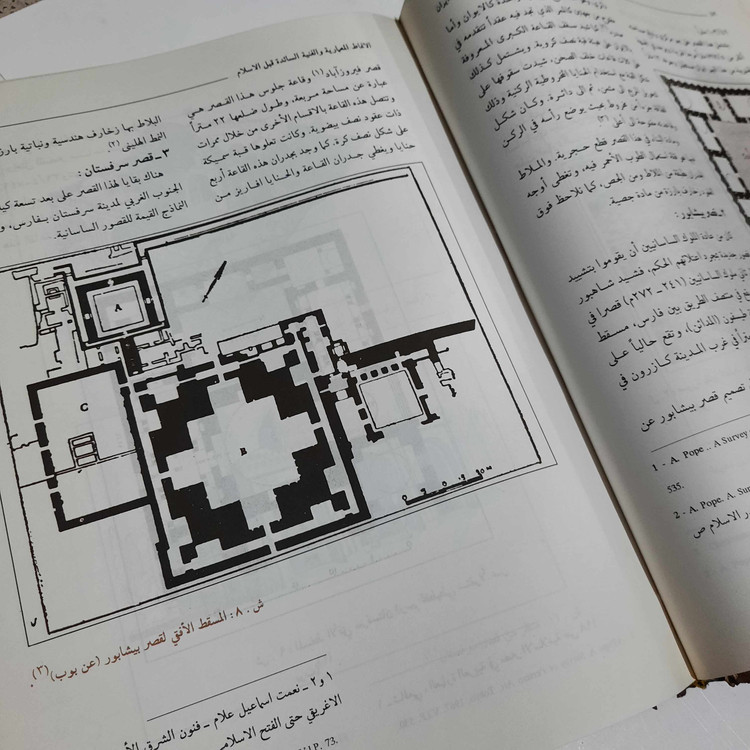 الأنماط المعمارية والفنية السائدة قبل الاسلام
قصر فيروزآباد (١) وقاعة جلوس هذا القصر هي
عبارة عن مساحة مربعة، وطول ضلعها ٢٢ متراً
وتتصل هذه القاعة بالاقسام الأخرى من خلال ممرات
ذات عقود نصف بيضوية. وكانت تعلوها قبة سميكة
على شكل نصف كرة. كما وجد بجدران هذه القاعة أربع
حنايا ويغطي جدران القاعة والحنايا افاريز من
البلاط بها زخارف هندسية ونباتية بارز
النمط الهليني (٢).
٣ ـ قصر سرفستان :
هناك بقايا لهذا القصر على بعد تسعة كيلو
الجنوب الغربي لمدينة سرفستان بفارس، و
النماذج القيمة للقصور الساسانية.
A
C
B
ش . ٨ : المسقط الأفقي لقصر بيشابور (عن بوب) (٣).
١ و ٢ ـ نعمت اسماعيل علام ـ فنون الشرق الأ
الاغريقي حتى الفتح الاسلامي
P. 73.
كالايوان وأما
عقداً تتقدمه في
سقف القاعة الكبرى المعروفة
نصف كروية. ويشتمل كذلك
القاعات الصحن، شيدت سقوفها على
استخدام الحنايا المخروطية الركنية وذلك
المربع الى مثمن، ثم الى دائرة. وكان شكل
مخروط بحيث يوضع رأسه في الركن
في هذا القصر قطع حجرية والملاط
استعمال الطوب الأحمر فيه، وتغطي أوجه
من الملاط ومن الجص، كما نلاحظ فوق
بارزة من مادة جصية.
الملوك الساسانيين أن يقوموا بتشييد
الحكم، فشيد شاهبور
ساسانيين (٢٤١-٢٧٢م) قصرا في
في منتصف الطريق بين فارس،
(المدائن)، وتقع حالياً على
في غرب المدينة كازرون في
تصميم قصر بيشابور عن
1 - A. Pope .. A Survey
535.
2 - A. Pope. A. Sur
ور الاسلام ص